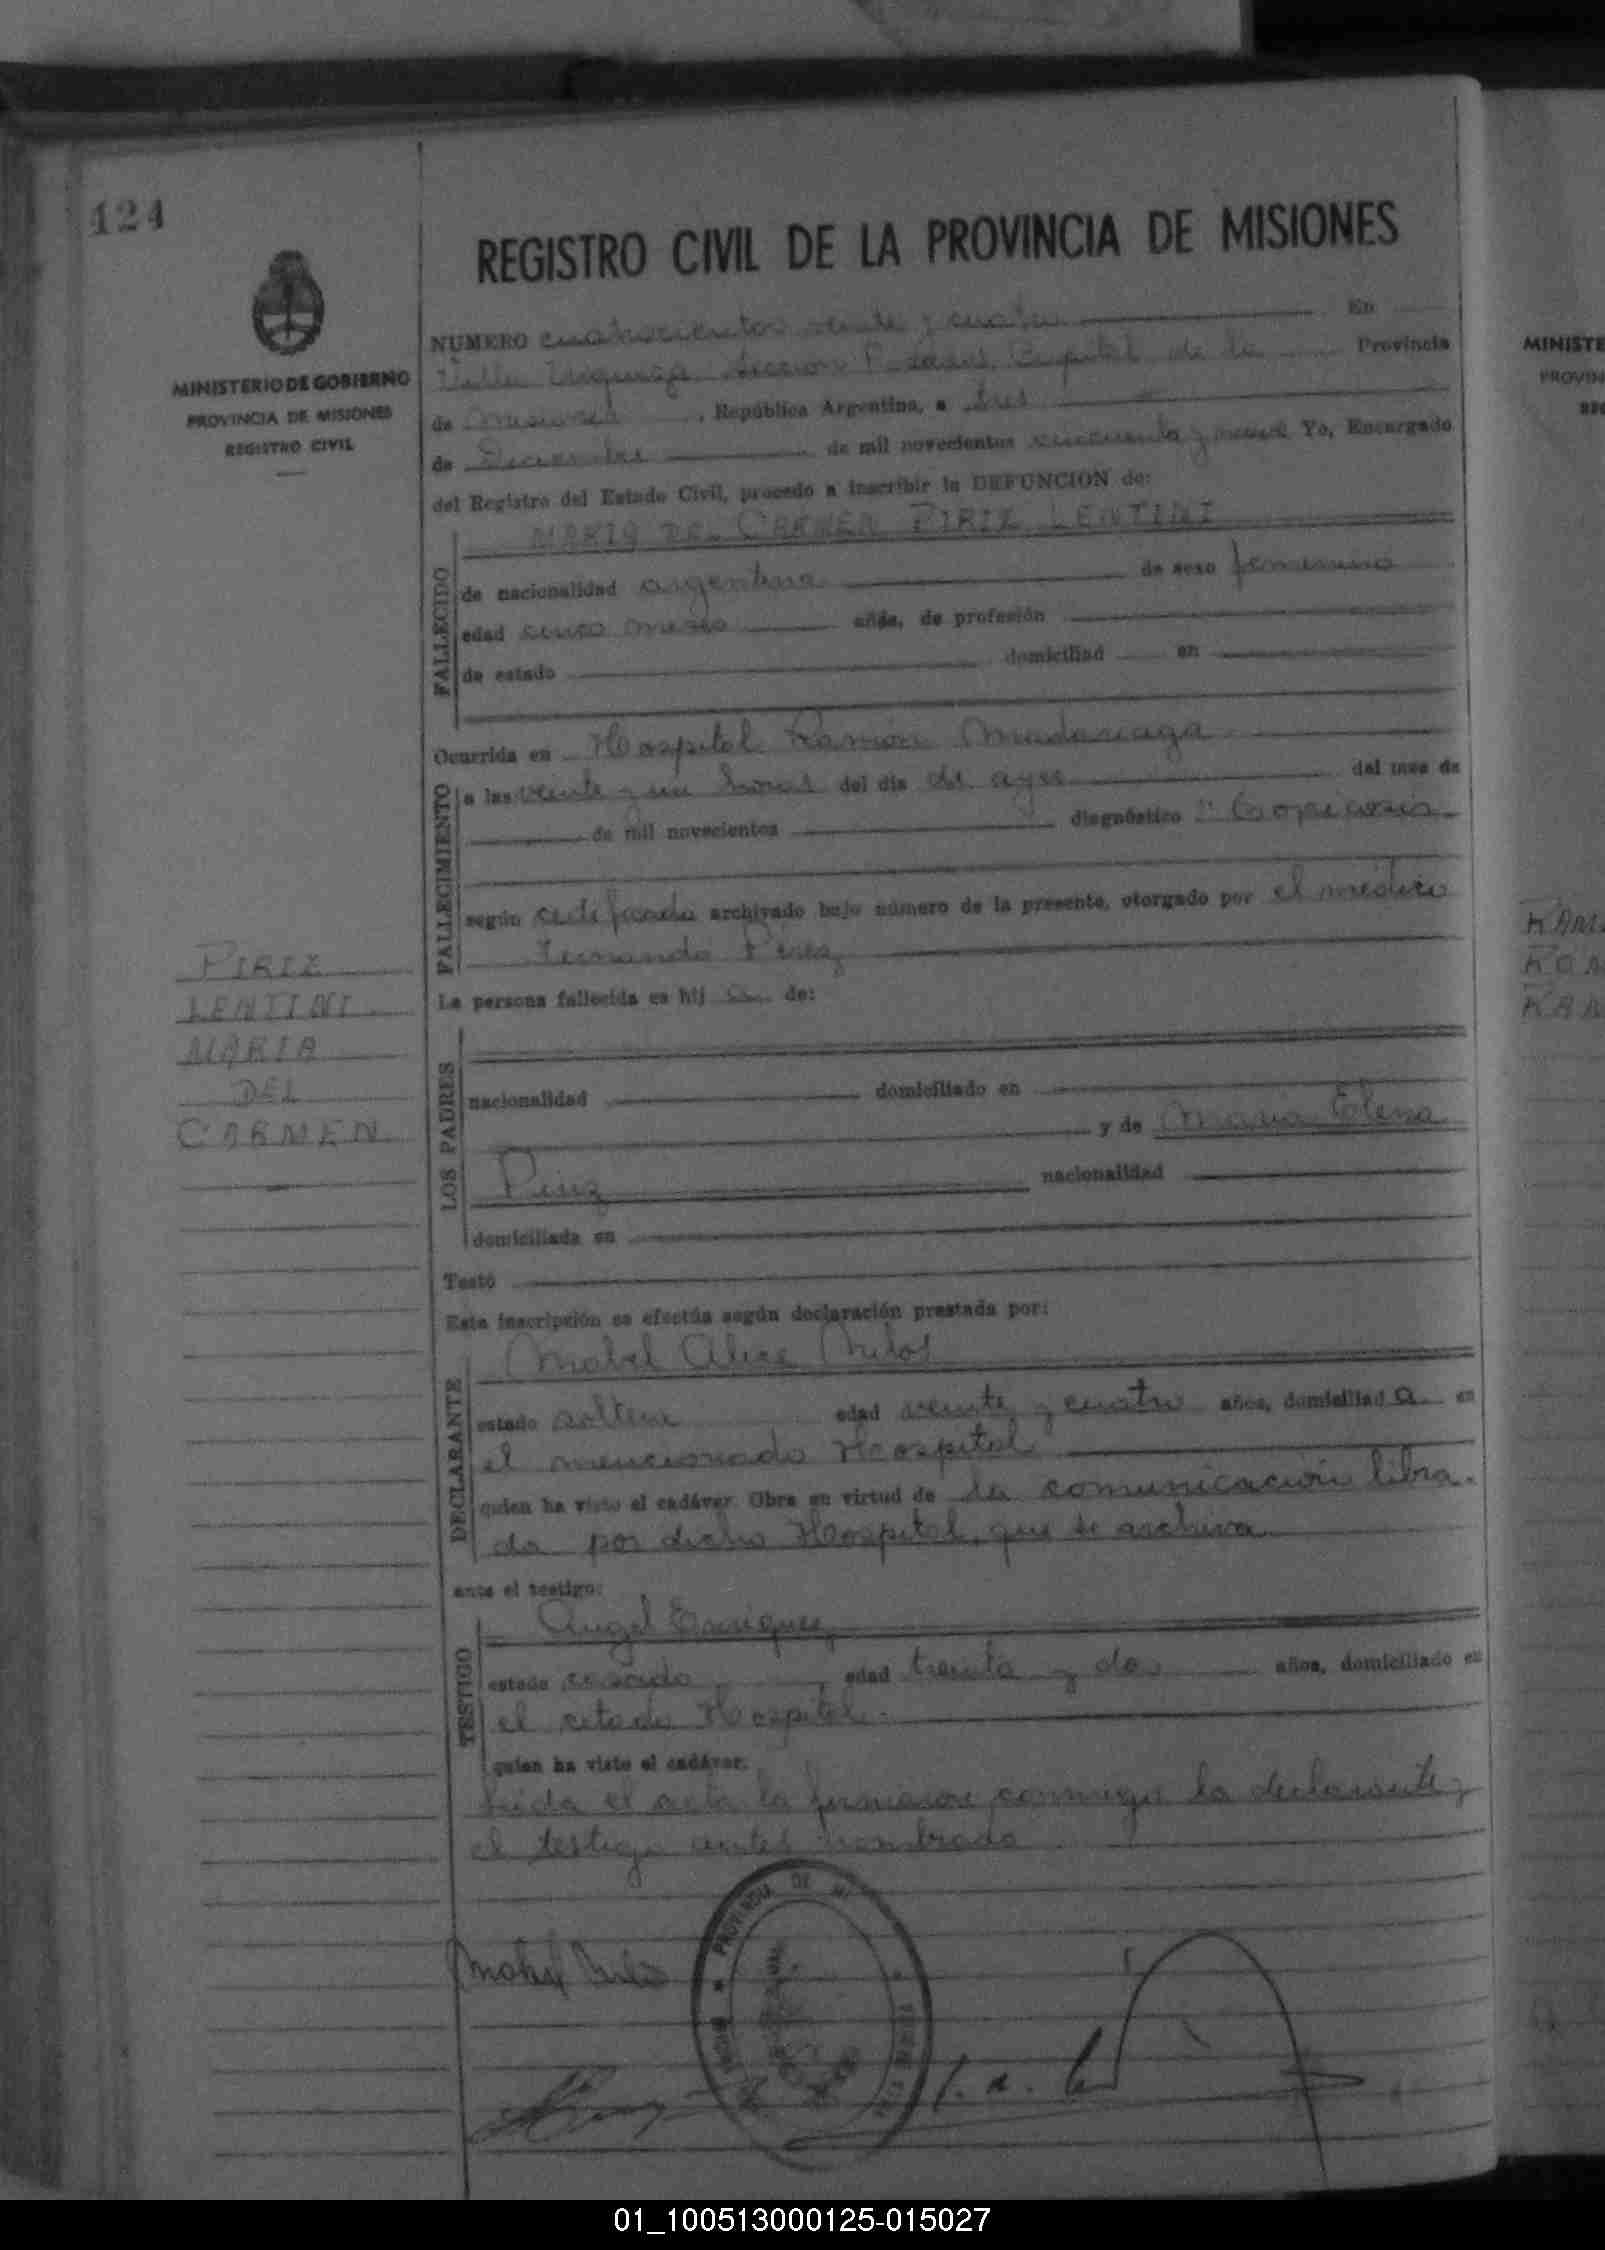 124
REGISTRO CIVIL DE LA PROVINCIA DE MISIONES
MINISTERIO DE GOBIERNO
PROVINCIA DE MISIONES
REGISTRO CIVIL
NUMERO cuatrocientos veinte y cuatro En
Villa Urquiza, Sección Posadas, Capital de la Provincia
de Misiones, República Argentina, a tres
de Diciembre de mil novecientos cincuenta y nueve Yo, Encargado
del Registro del Estado Civil, procedo a inscribir la DEFUNCION de:
FALLECIDO
MARIA DEL CARMEN PIRIZ LENTINI
de nacionalidad argentina de sexo femenino
edad cinco meses años, de profesión
de estado domiciliad en
Ocurrida en Hospital Ramón Madariaga
FALLECIMIENTO
a las veinte y un horas del día de ayer del mes de
de mil novecientos diagnóstico
según certificado archivado bajo número de la presente, otorgado por el médico
Fernando Pérez
PIRIZ
LENTINI
MARIA
DEL
CARMEN
La persona fallecida es hij a de:
LOS PADRES
nacionalidad domiciliado en
y de Maria Elena
Piriz nacionalidad
domiciliada en
Testó
Esta inscripción se efectúa según declaración prestada por:
DECLARANTE
Mabel Alice Milos
estado soltera edad veinte y cuatro años, domiciliad a en
el mencionado Hospital
quien ha visto el cadáver. Obra en virtud de la comunicación libra-
da por dicho Hospital, que se archiva
ante el testigo:
TESTIGO
Angel Enriquez
estado casado, edad treinta y dos años, domiciliado en
el citado Hospital.
quien ha visto el cadáver.
Leida el acta la firmaron conmigo la declarante y
el testigo antes nombrado
PROVINCIA DE
MINISTE
PROVIN
REG
01_100513000125-015027